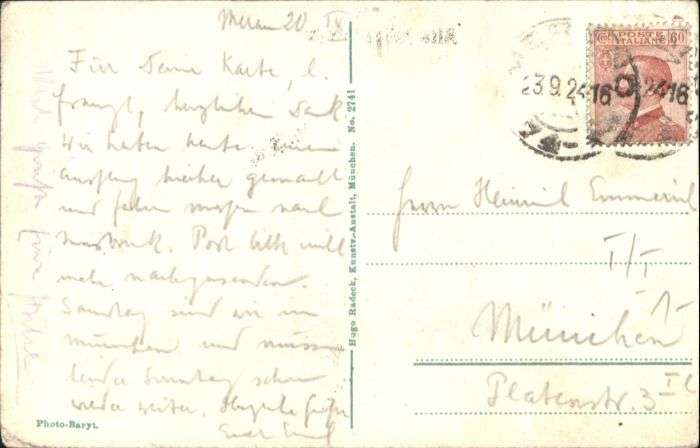 Meran 20 IX
Für Deine Karte, l.
herzlichen Dank
Wir haben heute einen
Ausflug hieher gemacht
und fahren morgen nach
Innsbruck. Post bitte nicht
mehr nachzusenden.
Samstag sind wir in
München und müssen
leider Sonntag schon
wieder weiter. Herzliche Grüße
Euch Emil
Viele Grüße
Photo-Baryt.
Hugo Radeck, Kunstv.-Anstalt, München. No. 2741
POSTE
ITALIANE
60
23.9.24 16
24 16
Herrn Heinrich Emmerich
I/I
München
Platenstr. 3 II